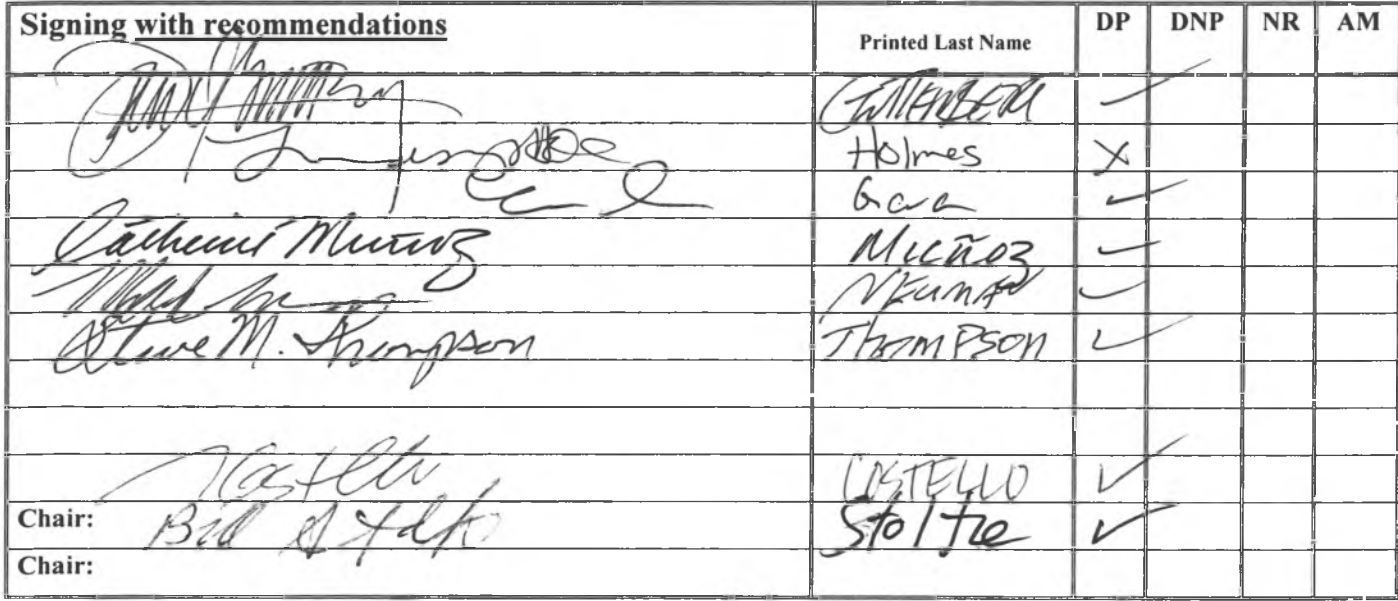 Signing with recommendations Printed Last Name DP DNP NR AM
GUTTENBERG ✓
Holmes X
Gara ✓
Catherine Muñoz Muñoz ✓
NEUMAN ✓
Steve M. Thompson THOMPSON ✓
Costello COSTELLO ✓
Chair: Bill Stoltze Stoltze ✓
Chair: